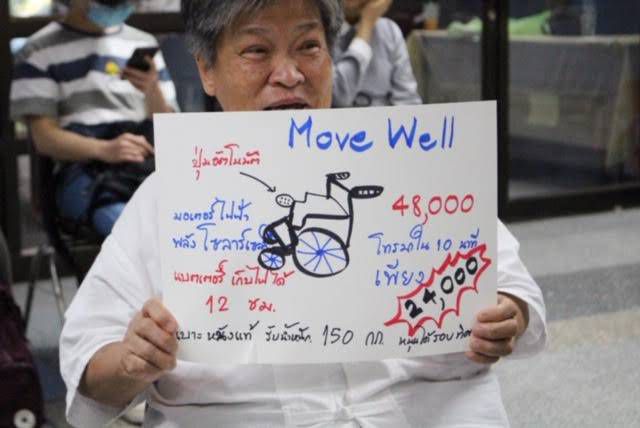 Move Well
ปุ่มอัตโนมัติ
48,000
มอเตอร์ไฟฟ้า
พลังโซลาร์เซลล์
โทรมาใน 10 นาที
เพียง
24,000
แบตเตอรี่ เก็บไฟได้
12 ชม.
เบาะ หนังแท้ รับน้ำหนัก 150 กก. หมุนได้รอบทิศ